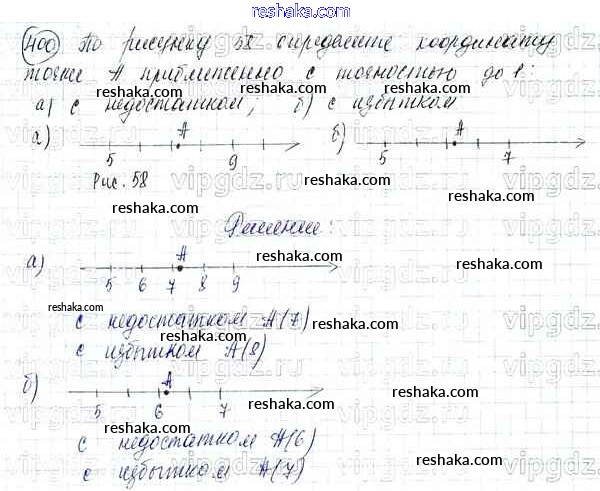 www.reshaka.com
400 По рисунку 58 определите координату
точки А приближенно с точностью до 1:
reshaka.com reshaka.com
а) с недостатком; б) с избытком
а) А б) А
5 9 5 7
Рис. 58
reshaka.com reshaka.com
reshaka.com
Решение:
reshaka.com
а) А
5 6 7 8 9
reshaka.com
reshaka.com
с недостатком А(7)
reshaka.com
с избытком А(8)
reshaka.com
б) А
5 6 7
reshaka.com reshaka.com
с недостатком А(6)
reshaka.com
с избытком А(7)
reshaka.com
vipgdz.ru